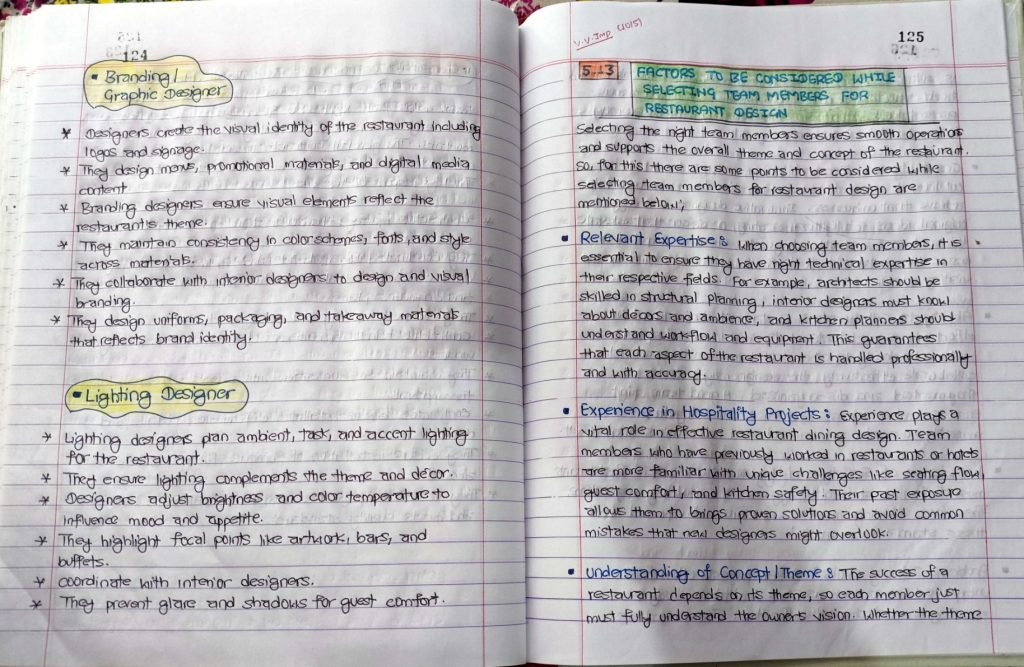 124
• Branding/
Graphic Designer
* Designers create the visual identity of the restaurant including
logos and signage.
* They design menus, promotional materials, and digital media
content
* Branding designers ensure visual elements reflect the
restaurant's theme.
* They maintain consistency in color schemes, fonts, and style
across materials.
* They collaborate with interior designers to design and visual
branding.
* They design uniforms, packaging, and takeaway materials
that reflects brand identity.
• Lighting Designer
* Lighting designers plan ambient, task, and accent lighting
for the restaurant.
* They ensure lighting complements the theme and décor.
* Designers adjust brightness and color temperature to
influence mood and appetite.
* They highlight focal points like artwork, bars, and
buffets.
* coordinate with interior designers.
* They prevent glare and shadows for guest comfort.
V.V.Imp (10/5)
125
5.13 FACTORS TO BE CONSIDERED WHILE
SELECTING TEAM MEMBERS FOR
RESTAURANT DESIGN
Selecting the right team members ensures smooth operation
and supports the overall theme and concept of the restaurant.
So, for this there are some points to be considered while
selecting team members for restaurant design are
mentioned below;
• Relevant Expertise : When choosing team members, it is
essential to ensure they have right technical expertise in
their respective fields. For example, architects should be
skilled in structural planning, interior designers must know
about décors and ambience, and kitchen planners should
understand workflow and equipment. This guarantees
that each aspect of the restaurant is handled professionally
and with accuracy.
• Experience in Hospitality Projects : Experience plays a
vital role in effective restaurant dining design. Team
members who have previously worked in restaurants or hotels
are more familiar with unique challenges like seating flow,
guest comfort, and kitchen safety. Their past exposure
allows them to brings proven solutions and avoid common
mistakes that new designers might overlook.
• Understanding of Concept/Theme : The success of a
restaurant depends on its theme, so each member just
must fully understand the owner's vision. Whether the theme